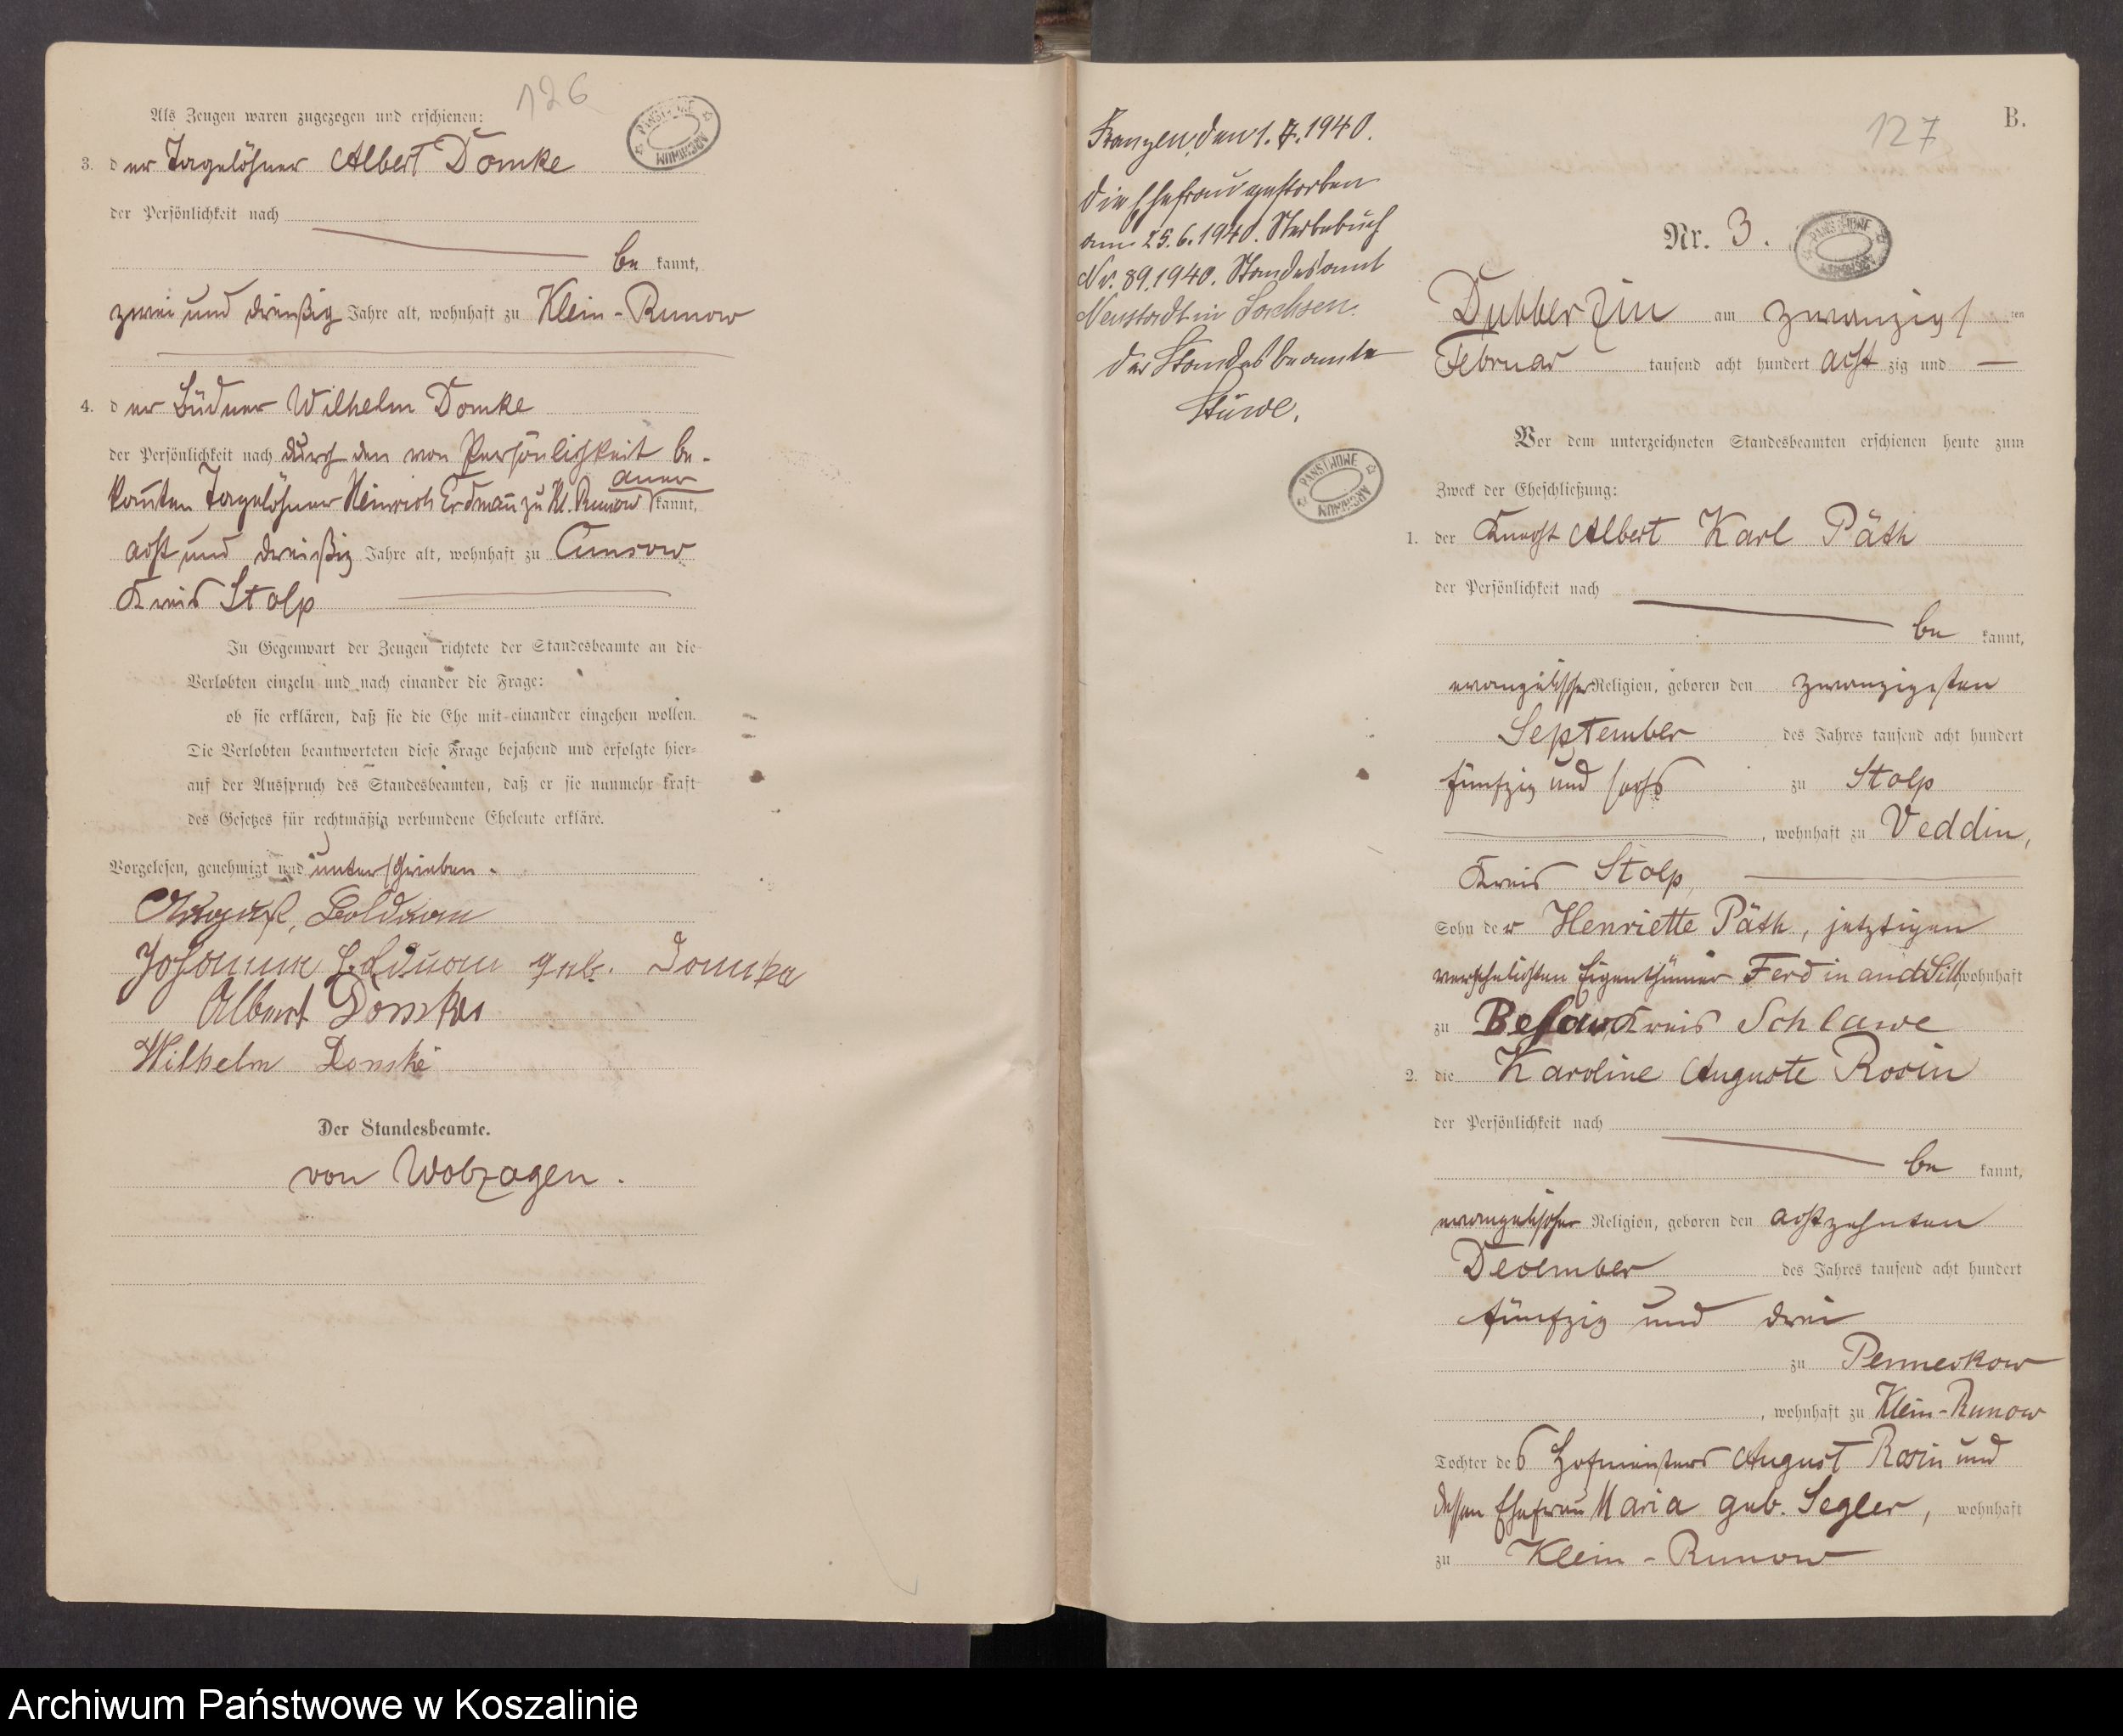 126
Als Zeugen waren zugezogen und erschienen:
3. der Tagelöhner Albert Domke
der Persönlichkeit nach
be kannt,
zwei und dreißig Jahre alt, wohnhaft zu Klein-Runow
4. der Büdner Wilhelm Domke
der Persönlichkeit nach durch den von Persönlichkeit be-
kannten Tagelöhner Heinrich Erdmann zu Kl. Runow aner kannt,
acht und dreißig Jahre alt, wohnhaft zu Cunsow
Kreis Stolp
In Gegenwart der Zeugen richtete der Standesbeamte an die
Verlobten einzeln und nach einander die Frage:
ob sie erklären, daß sie die Ehe mit einander eingehen wollen.
Die Verlobten beantworteten diese Frage bejahend und erfolgte hier-
auf der Ausspruch des Standesbeamten, daß er sie nunmehr kraft
des Gesetzes für rechtmäßig verbundene Eheleute erkläre.
Vorgelesen, genehmigt und unterschrieben.
August Bolduan
Johanna Bolduan geb. Domke
Albert Domke
Wilhelm Domke
Der Standesbeamte.
von Wobzagen.
PANSTWOWE ARCHIWUM
Franzen, den 1.7.1940.
Die Ehefrau gestorben
am 25.6.1940. Sterbebuch
Nr. 89.1940. Standesamt
Neustadt in Sachsen.
Der Standesbeamte
Stüwe.
PANSTWOWE ARCHIWUM
127
B.
Nr. 3.
PANSTWOWE ARCHIWUM
Dubberzin am zwanzigsten
Februar tausend acht hundert acht zig und —
Vor dem unterzeichneten Standesbeamten erschienen heute zum
Zweck der Eheschließung:
1. der Knecht Albert Karl Päth
der Persönlichkeit nach
be kannt,
evangelischer Religion, geboren den zwanzigsten
September des Jahres tausend acht hundert
fünfzig und sechs zu Stolp
, wohnhaft zu Veddin,
Kreis Stolp,
Sohn der Henriette Päth, jetztigen
verehelichten Eigenthümer Ferdinand wohnhaft
zu Besow Kreis Schlawe
2. die Karoline Auguste Rosin
der Persönlichkeit nach
be kannt,
evangelischer Religion, geboren den achtzehnten
December des Jahres tausend acht hundert
fünfzig und drei
zu Pennekow
, wohnhaft zu Klein-Runow
Tochter des Hofmeisters August Rosin und
dessen Ehefrau Maria geb. Segler, wohnhaft
zu Klein-Runow
Archiwum Państwowe w Koszalinie